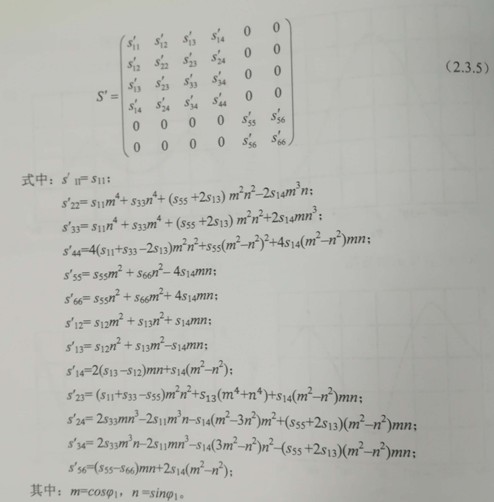 S' = ( s'₁₁ s'₁₂ s'₁₃ s'₁₄ 0 0
s'₁₂ s'₂₂ s'₂₃ s'₂₄ 0 0
s'₁₃ s'₂₃ s'₃₃ s'₃₄ 0 0 (2.3.5)
s'₁₄ s'₂₄ s'₃₄ s'₄₄ 0 0
0 0 0 0 s'₅₅ s'₅₆
0 0 0 0 s'₅₆ s'₆₆ )
式中: s'₁₁= s₁₁;
s'₂₂= s₁₁m⁴+ s₃₃n⁴+ (s₅₅ +2s₁₃) m²n²–2s₁₄m³n;
s'₃₃= s₁₁n⁴ + s₃₃m⁴ + (s₅₅ +2s₁₃) m²n²+2s₁₄mn³;
s'₄₄=4(s₁₁+s₃₃ –2s₁₃)m²n²+s₅₅(m²–n²)²+4s₁₄(m²–n²)mn;
s'₅₅= s₅₅m² + s₆₆n²– 4s₁₄mn;
s'₆₆= s₅₅n² + s₆₆m²+ 4s₁₄mn;
s'₁₂= s₁₂m² + s₁₃n²+ s₁₄mn;
s'₁₃= s₁₂n² + s₁₃m²–s₁₄mn;
s'₁₄=2(s₁₃ –s₁₂)mn+s₁₄(m²–n²);
s'₂₃= (s₁₁+s₃₃ –s₅₅)m²n²+s₁₃(m⁴+n⁴)+s₁₄(m²–n²)mn;
s'₂₄= 2s₃₃mn³–2s₁₁m³n–s₁₄(m²–3n²)m²+(s₅₅+2s₁₃)(m²–n²)mn;
s'₃₄= 2s₃₃m³n–2s₁₁mn³–s₁₄(3m²–n²)n²–(s₅₅ +2s₁₃)(m²–n²)mn;
s'₅₆=(s₅₅–s₆₆)mn+2s₁₄(m²–n²);
其中: m=cosφ₁, n =sinφ₁。